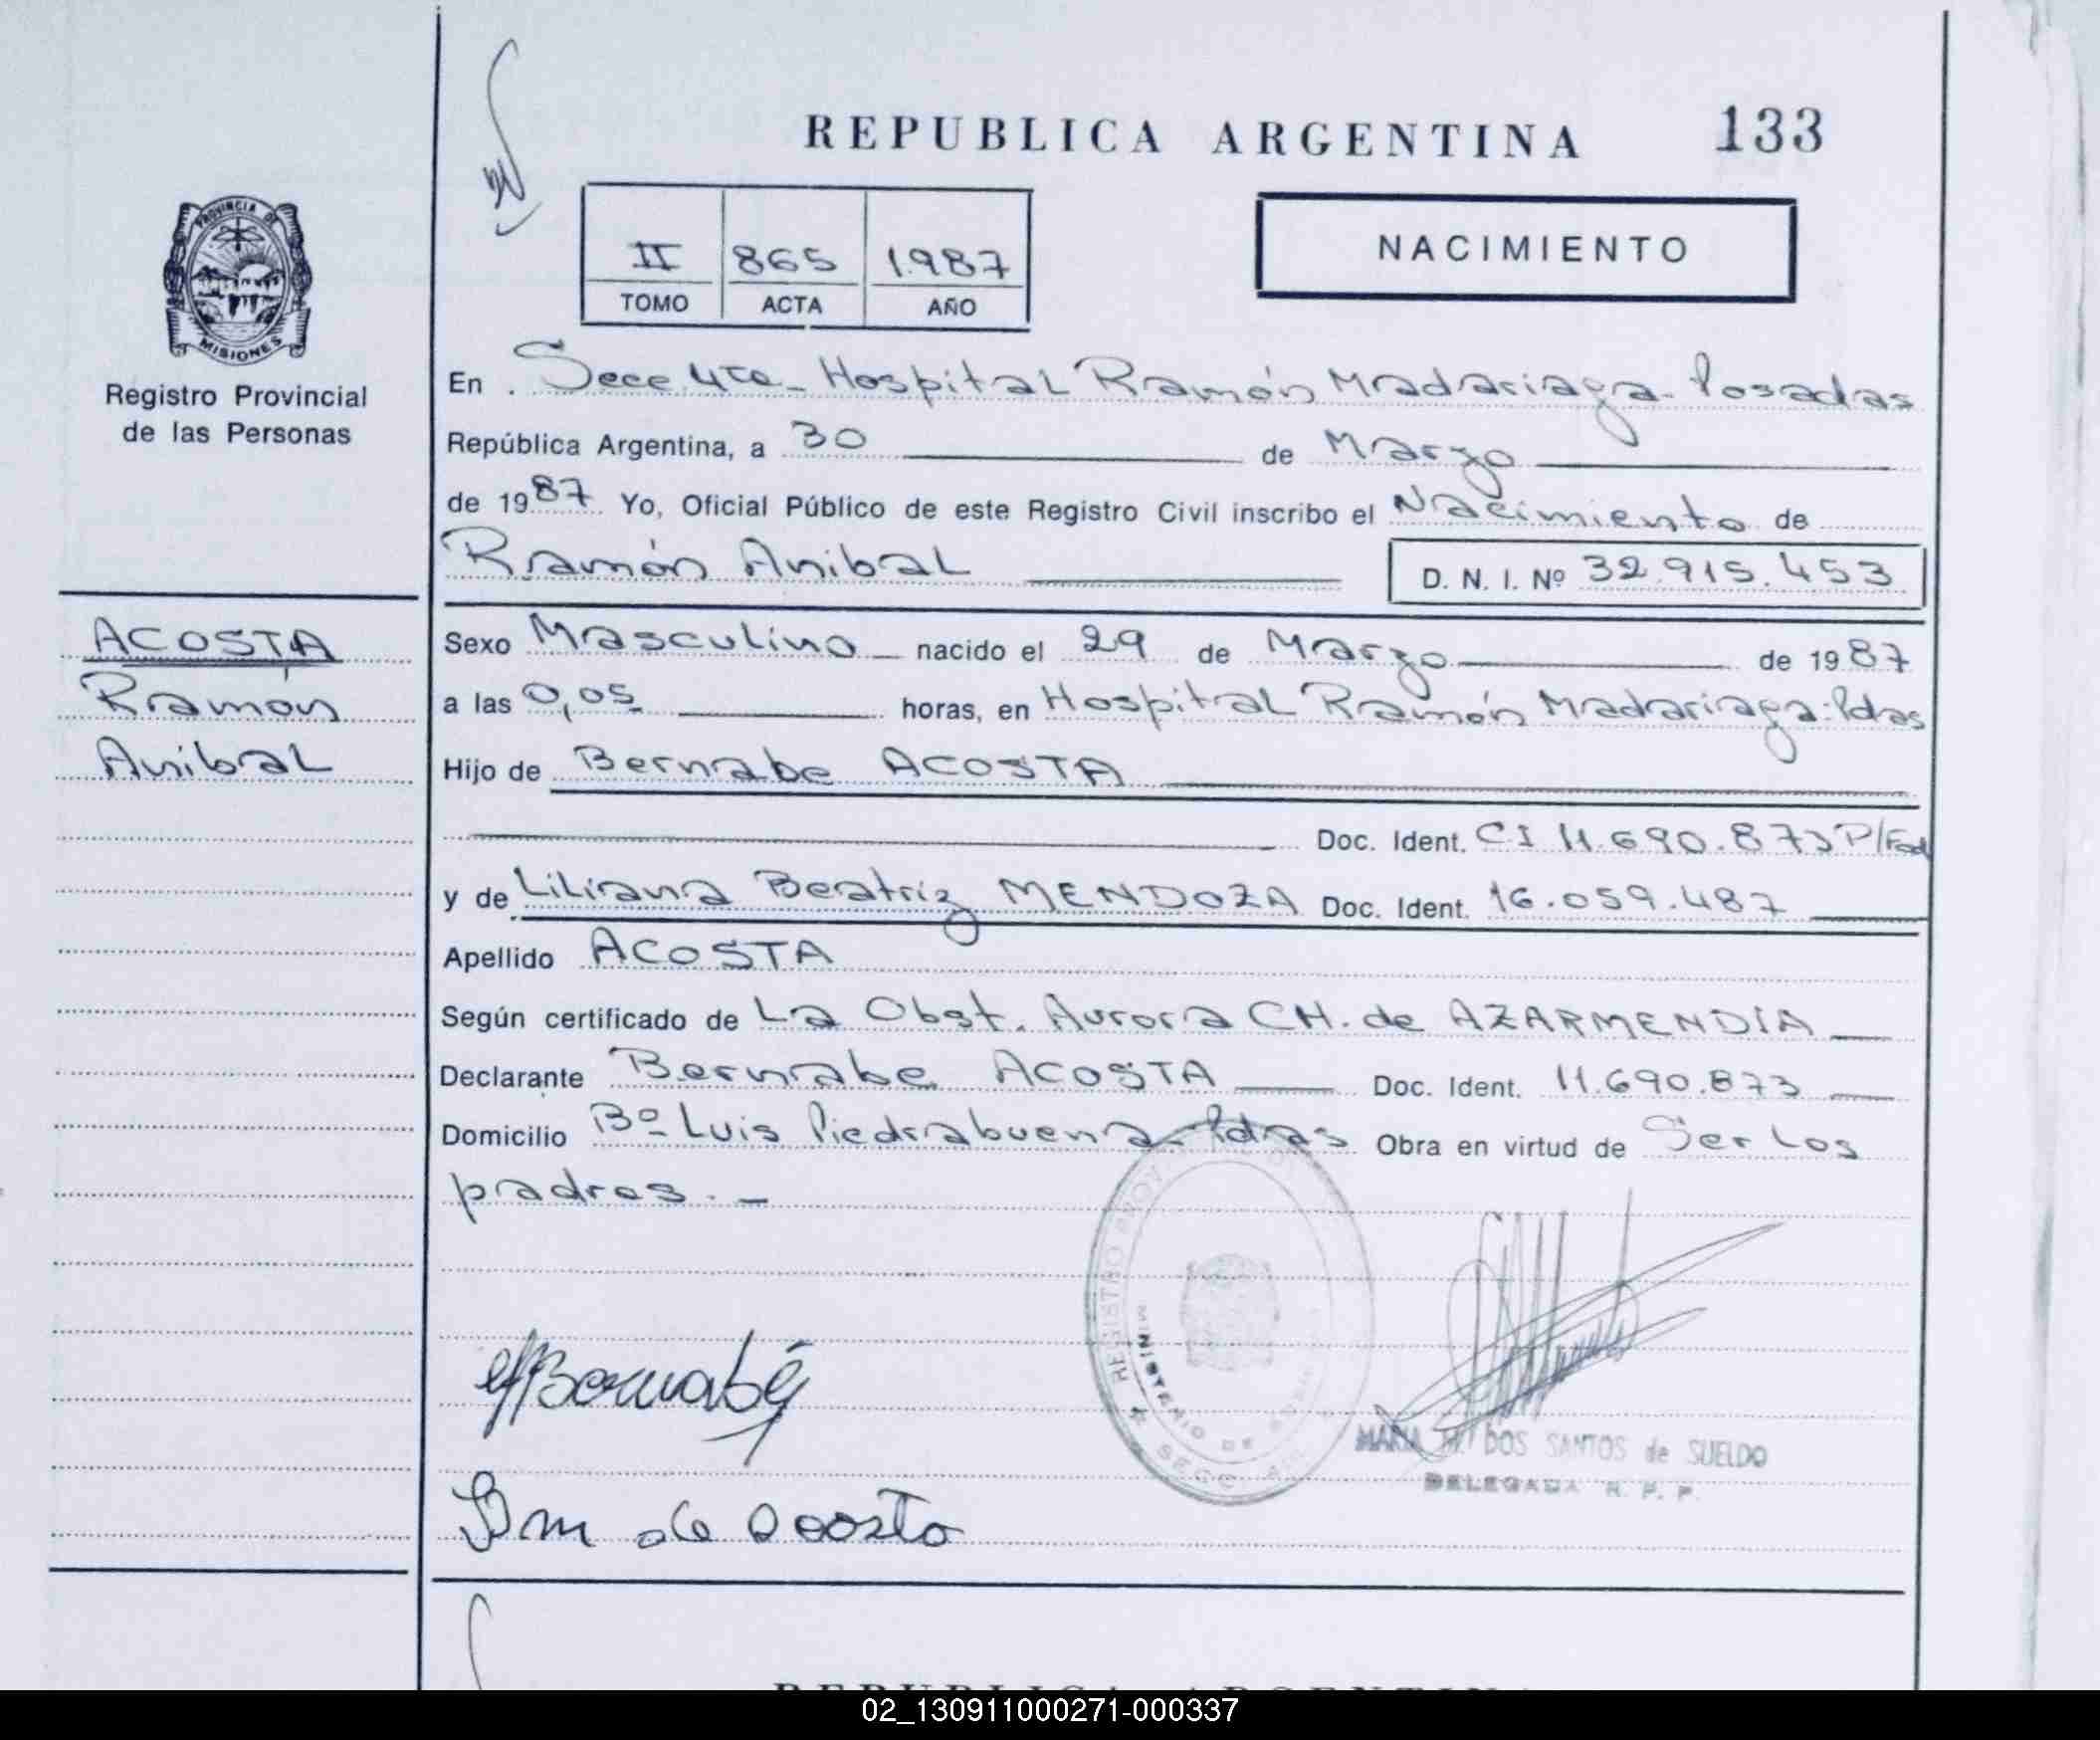 REPUBLICA ARGENTINA 133
PROVINCIA DE
MISIONES
Registro Provincial
de las Personas
II 865 1.987
TOMO ACTA AÑO
NACIMIENTO
En Secc 4ta - Hospital Ramón Madariaga - Posadas
República Argentina, a 30 de Marzo
de 1987 Yo, Oficial Público de este Registro Civil inscribo el Nacimiento de
Ramón Anibal D. N. I. Nº 32.915.453
ACOSTA
Ramón
Anibal
Sexo Masculino nacido el 29 de Marzo de 1987
a las 0,05 horas, en Hospital Ramón Madariaga - Pdas
Hijo de Bernabe ACOSTA
Doc. Ident. CI 11.690.873 P/Fed
y de Liliana Beatriz MENDOZA Doc. Ident. 16.059.487
Apellido ACOSTA
Según certificado de La Obst. Aurora CH. de AZARMENDIA
Declarante Bernabe ACOSTA Doc. Ident. 11.690.873
Domicilio Bº Luis Piedrabuena - Pdas Obra en virtud de Ser los
padres. -
REGISTRO PROV
MINISTERIO DE
SECC
Bernabé
MARIA DOS SANTOS de SUELDO
DELEGADA R. P. P.
de Acosta
REPUBLICA ARGENTINA
02_130911000271-000337